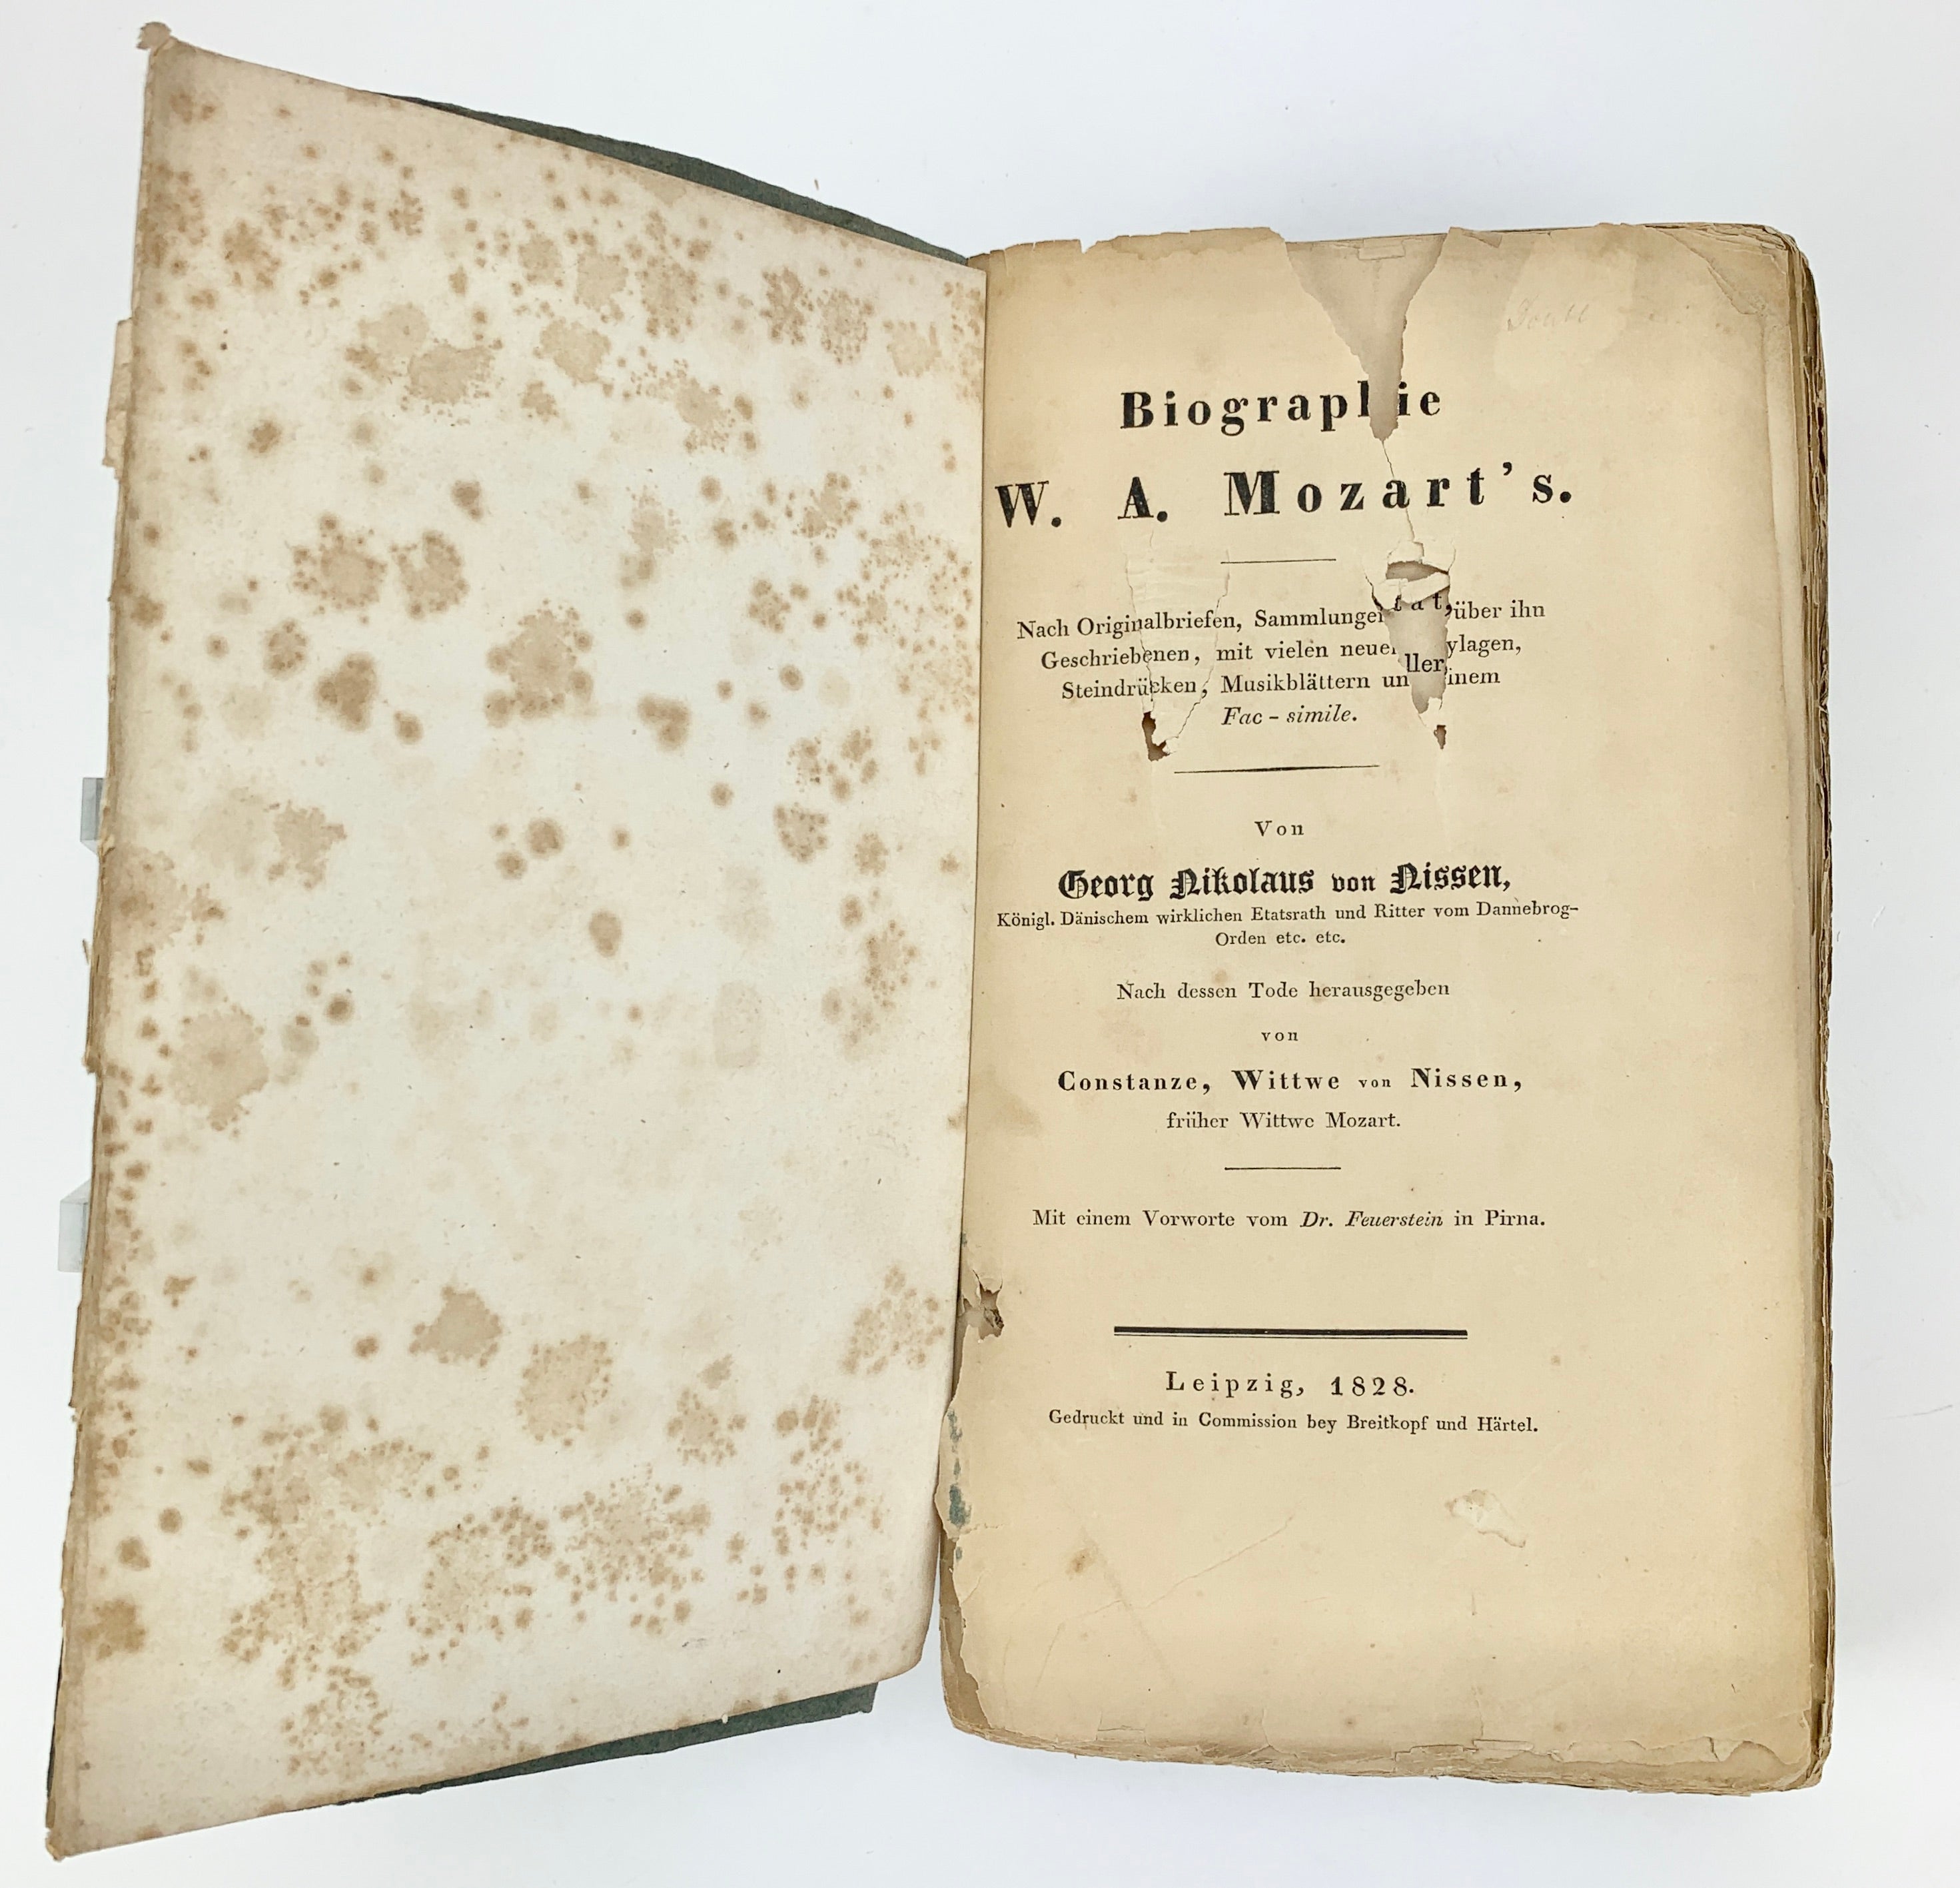 Biographie
W. A. Mozart's.
Nach Originalbriefen, Sammlungen tät, über ihn
Geschriebenen, mit vielen neuen ylagen,
ller
Steindrücken, Musikblättern un inem
Fac-simile.
Von
Georg Nikolaus von Nissen,
Königl. Dänischem wirklichen Etatsrath und Ritter vom Dannebrog-
Orden etc. etc.
Nach dessen Tode herausgegeben
von
Constanze, Wittwe von Nissen,
früher Wittwe Mozart.
Mit einem Vorworte vom Dr. Feuerstein in Pirna.
Leipzig, 1828.
Gedruckt und in Commission bey Breitkopf und Härtel.